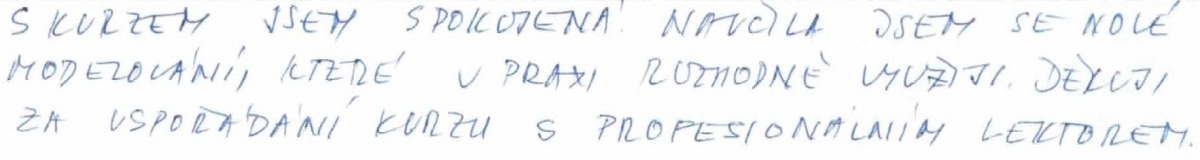 S KURZEM JSEM SPOKOJENÁ. NAUČILA JSEM SE NOVÉ
MODELOVÁNÍ, KTERÉ V PRAXI ROZHODNĚ VYUŽIJI. DĚKUJI
ZA USPOŘÁDÁNÍ KURZU S PROFESIONÁLNÍM LEKTOREM.